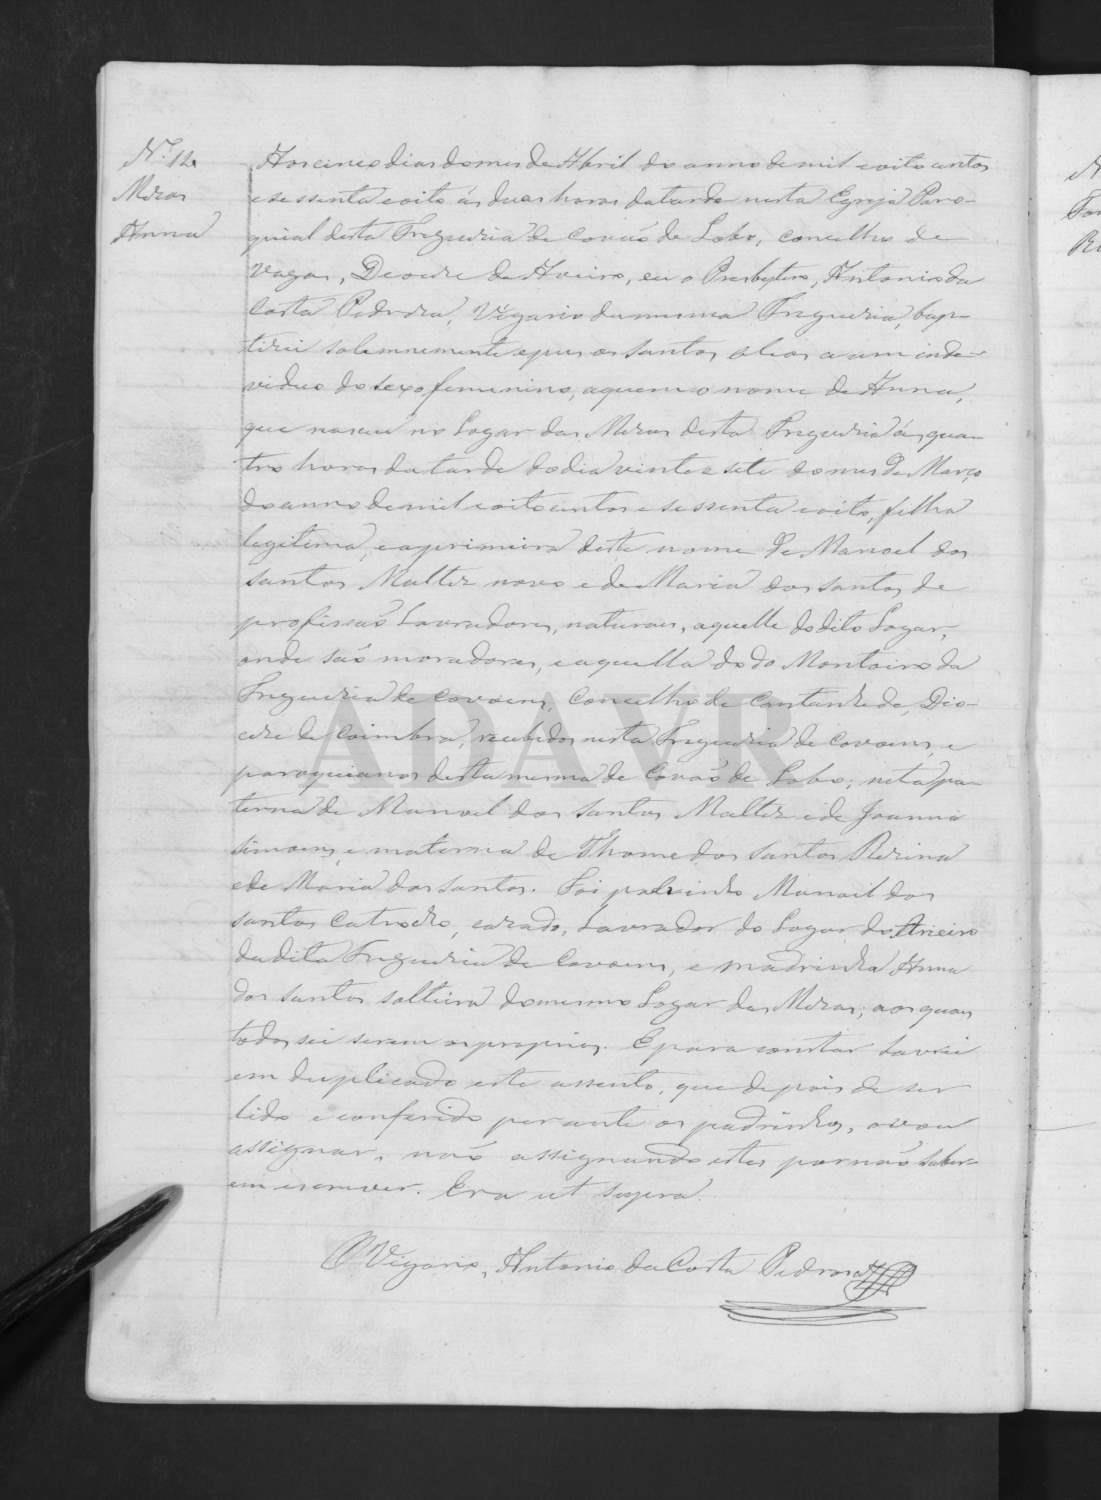 N.º 12
Mezas
Anna
Aos cinco dias do mes de Abril do anno de mil e oito centos
e sessenta e oito ás duas horas da tarde nesta Egreja Paro-
quial desta Freguezia de Covão de Lobo, concelho de
Vagos, Diocese de Aveiro, eu o Presbytero, Antonio da
Costa Pedroza, Vigario da mesma Freguezia, bap-
tizei solemnemente e puz os santos oleos a um indi-
viduo do sexo femenino, a quem o nome de Anna,
que nasceu no Logar das Mezas desta Freguezia ás qua-
tro horas da tarde do dia vinte e sete do mes de Março
do anno de mil e oito centos e sessenta e oito, filha
legitima, e a primeira deste nome de Manoel dos
santos Maltez novo e de Maria dos santos de
profissão Lavradores, naturaes, aquelle do dito Logar,
onde são moradores, e aquella do do Montoiro da
Freguezia de Covoens, Concelho de Cantanhede, Dio-
cese de Coimbra, recebidos nesta Freguezia de Covoens, e
paroquianos desta mesma de Covão de Lobo; neta pa-
terna de Manoel dos Santos Maltez e de Joanna
simoens, e materna de Thome dos Santos
e de Maria dos santos. Foi padrinho Manoel dos
santos, cazado, Lavrador do Logar do Arieiro
da dita Freguezia de Covoens, e madrinha Anna
dos santos solteira do mesmo Logar das Mezas; aos quaes
todos sei serem os proprios. E para constar Lavrei
em duplicado este assento, que depois de ser
lido e conferido perante os padrinhos, o vou
assignar, não assignando estes por não saber-
em escrever. Era ut supra.
O Vigario, Antonio da Costa Pedroza
ADAVR